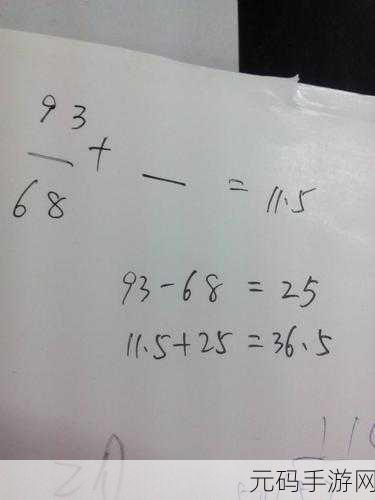 93
— + — = 11.5
68
93-68=25
11.5+25=36.5
元码手游网